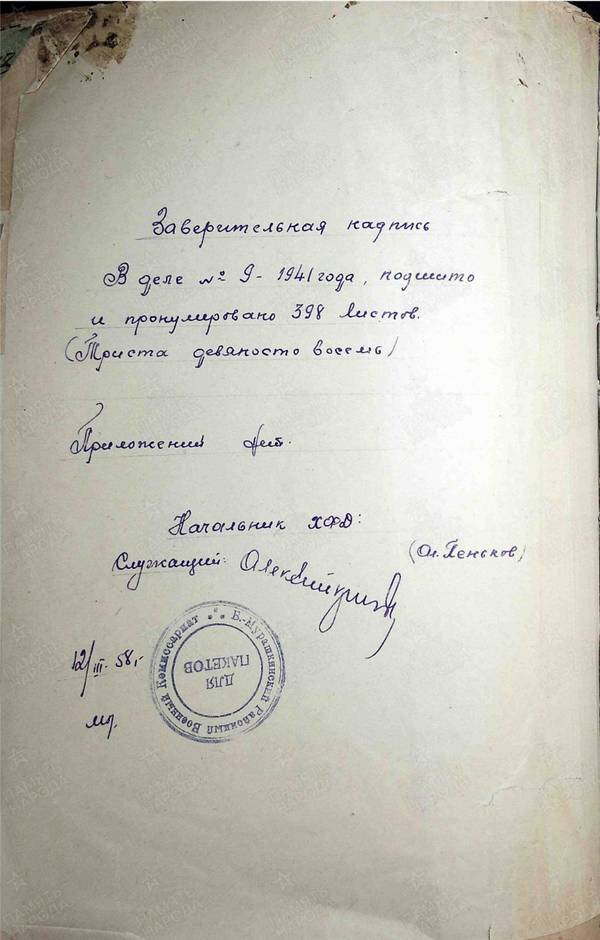 Заверительная надпись
В деле № 9 - 1941 года, подшито
и пронумировано 398 листов.
(Триста девяносто восемь)
Приложений нет.
Начальник ХФД:
Служащий:
(Пеньков)
12/III-58 г.
Б.-Мурашкинский Районный Военный Комиссариат
ДЛЯ
ПАКЕТОВ
ПАМЯТЬ
НАРОДА